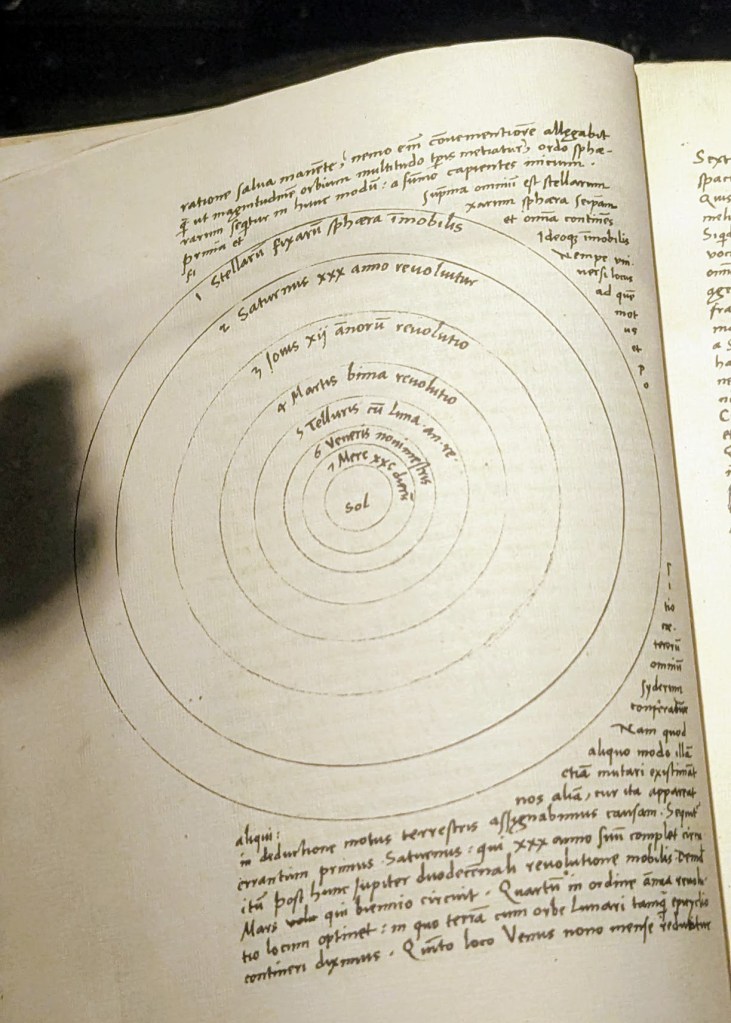 ratione salua manēte, nemo em̄ cōuenientiorē allegabit
q̄ ut magnitudinē orbium multitudo tp̄is metiatur, ordo sphæ-
rarum seqtur in hunc modū: a sūmo capientes initium.
prima et
suprema omniū est stellarum
fi
xarum sphæra seipam
et omnia continēs
Ideoqȝ īmobilis
Nempe vni-
uersi locus
ad quē
mot
us
et
p
o
1 Stellarū fixarū sphæra īmobilis
2 Saturnus xxx anno reuoluitur
3 Iouis xij ānorū reuolutio
4 Martis bima reuolutio
5 Telluris cū Luna an. re.
6 Veneris nonimestris
7 Merc xxc dierū
Sol
tio
ce-
terorū
omniū
syderum
conferatur
Nam quod
aliquo modo illā
etiā mutari existimāt
aliqui:
nos aliā, cur ita appareat
in deductione motus terrestris assignabimus causam. Sequit
errantium primus Saturnus: qui xxx anno suū complet circu
itū post hunc Jupiter duodecennali reuolutione mobilis Demū
Mars qui biennio circuit. Quartū in ordine ānua reuolu
tio locum optinet: in quo terrā cum orbe Lunari tamqȝ epicyclo
contineri diximus. Quīto loco Venus nono mense reducitur